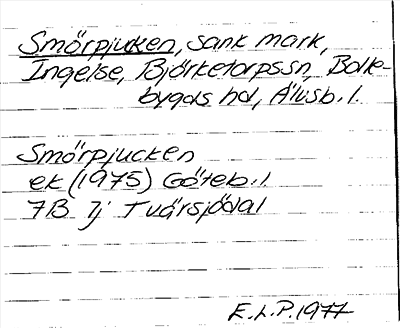 Smörpjucken, sank mark,
Ingelse, Björketorpssn, Bolle-
bygds hd, Älvsb. l.
Smörpjucken
ek (1975) Göteb. l.
7B 7j Tvärsjödal
E.L.P. 1977